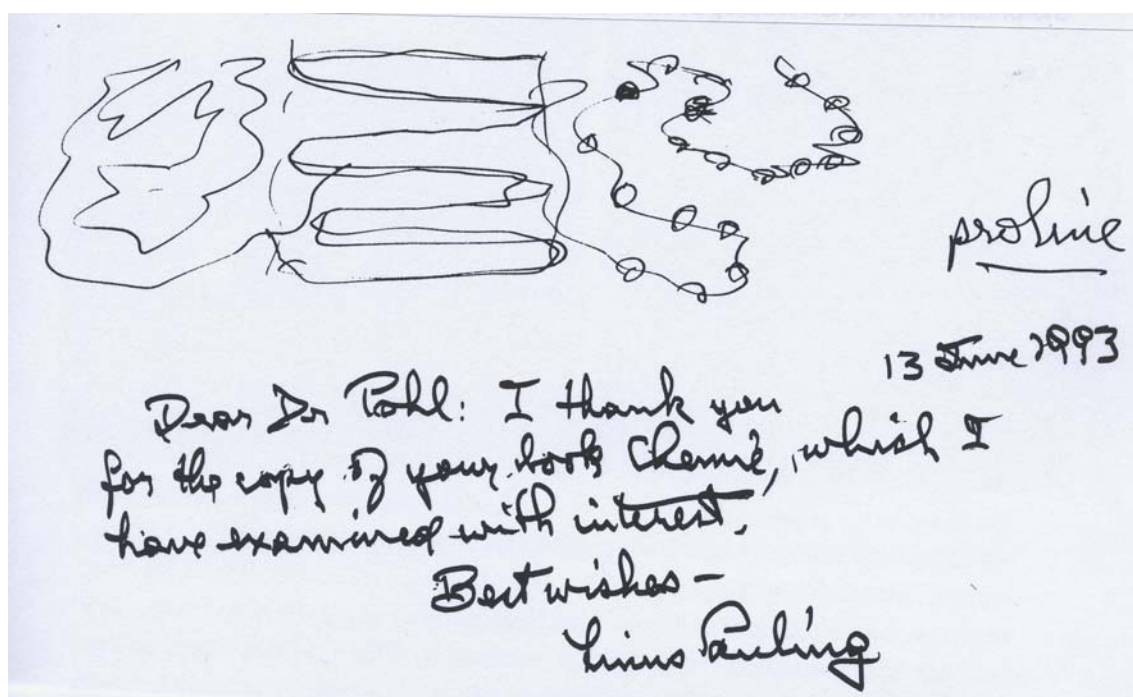 proline
13 June 1993
Dear Dr Pohl: I thank you
for the copy of your book Chemie, which I
have examined with interest.
Best wishes –
Linus Pauling